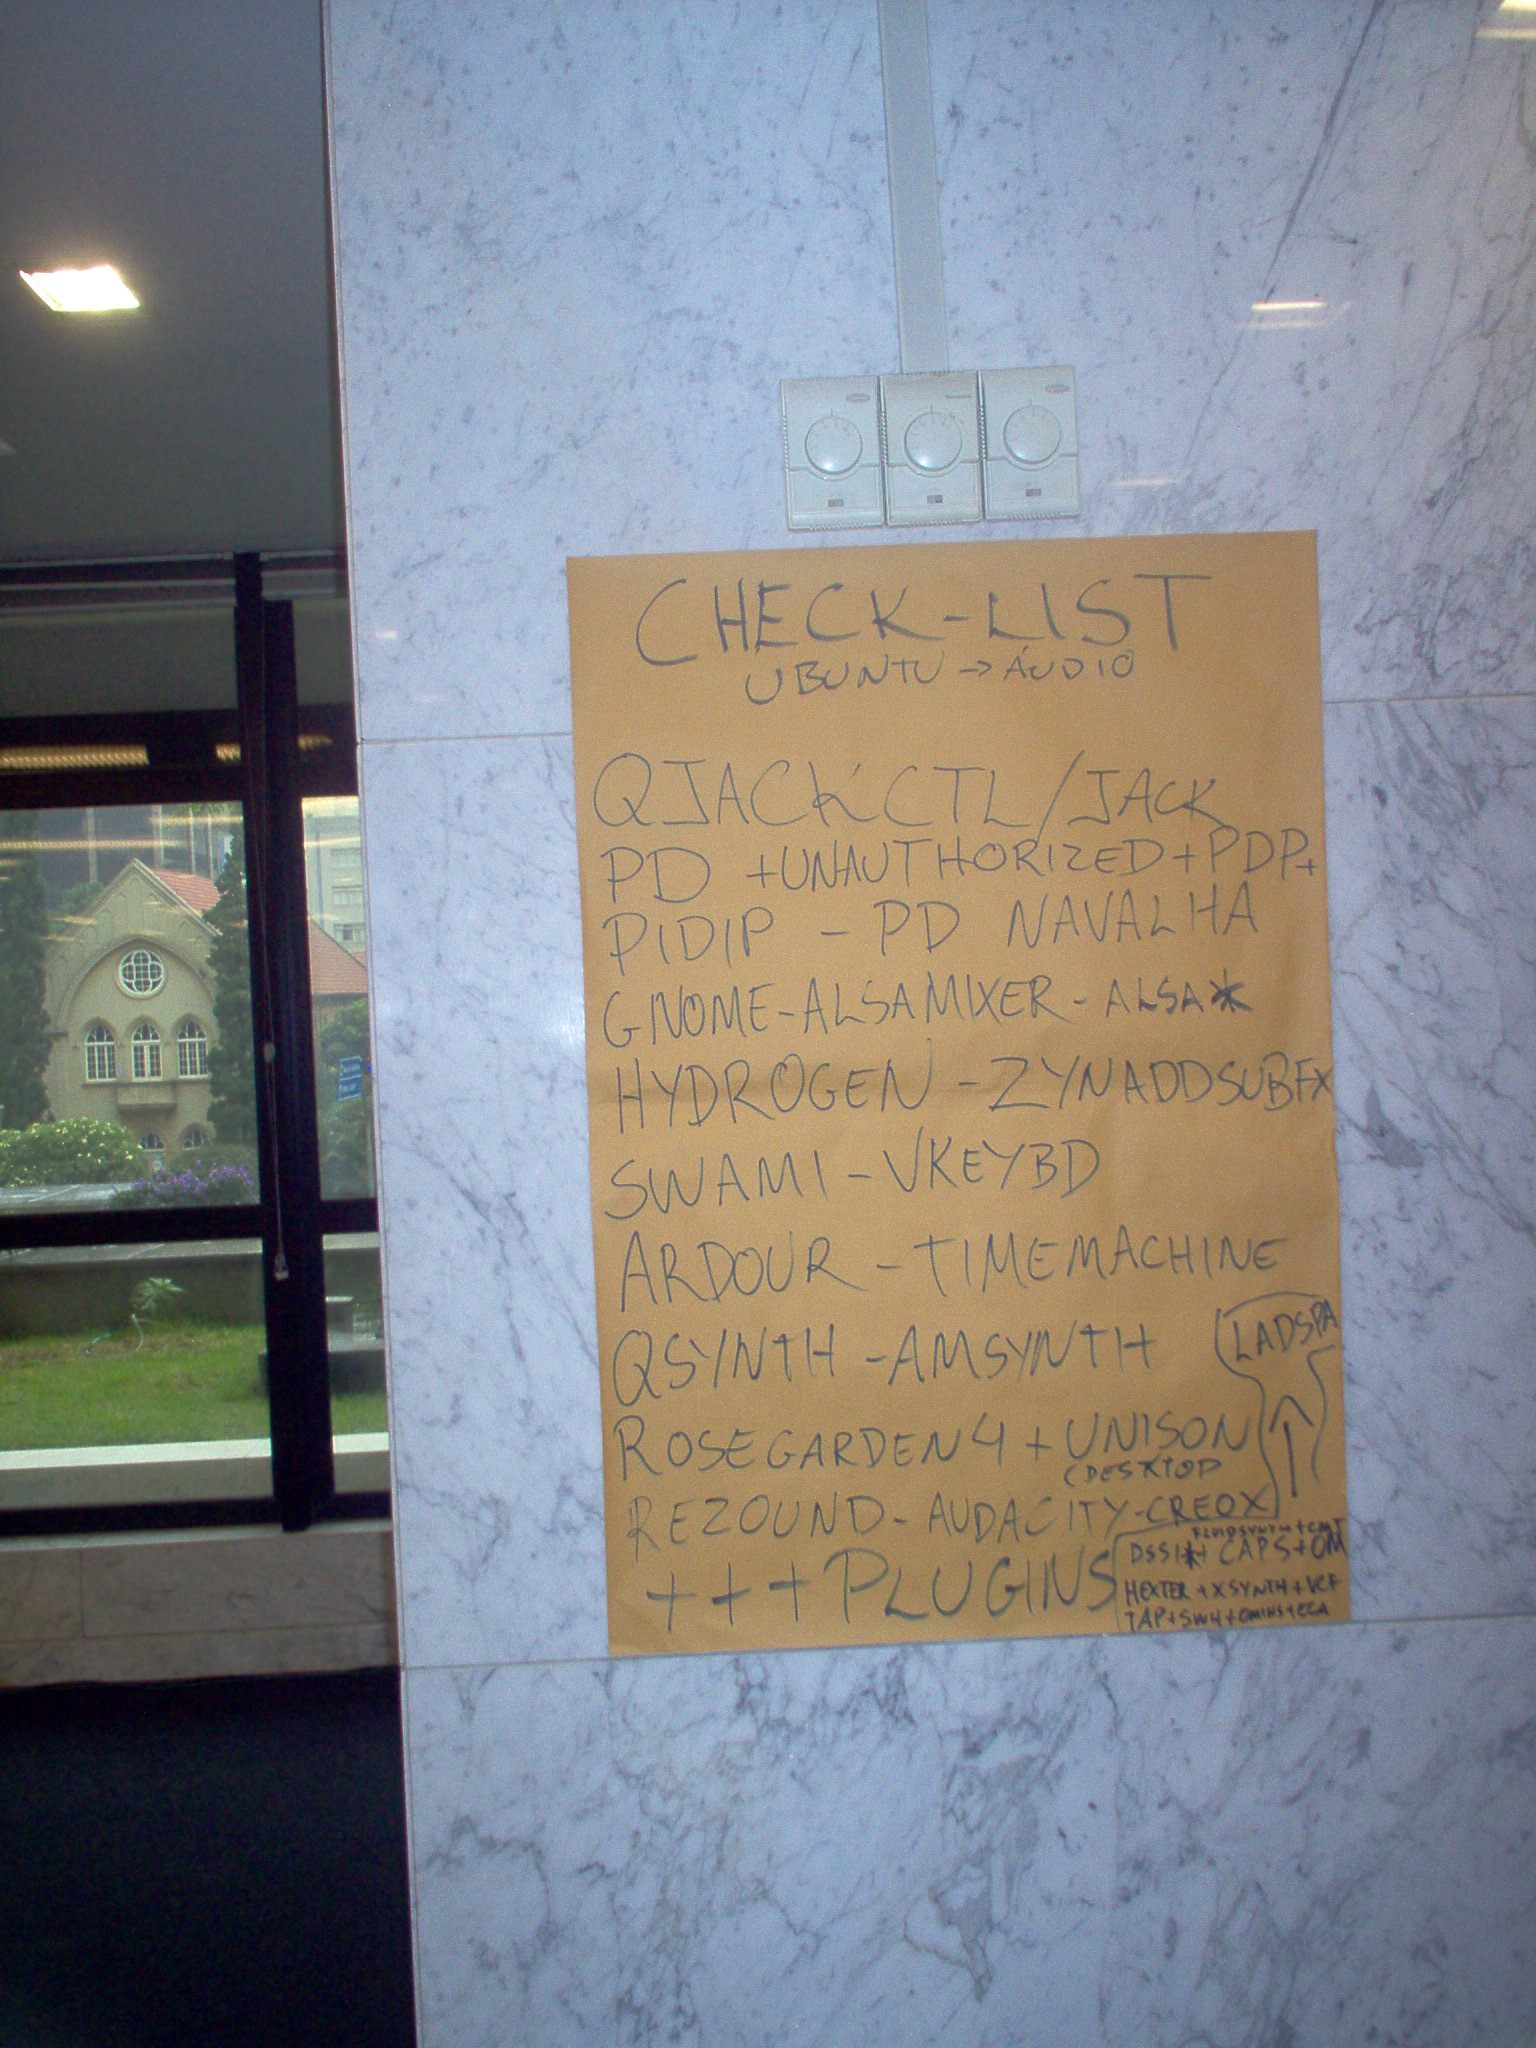 CHECK-LIST
UBUNTU → ÁUDIO
QJACKCTL/JACK
PD +UNAUTHORIZED+PDP+
PIDIP - PD NAVALHA
GNOME-ALSAMIXER - ALSA*
HYDROGEN - ZYNADDSUBFX
SWAMI - VKEYBD
ARDOUR - TIMEMACHINE
LADSPA
QSYNTH - AMSYNTH
ROSEGARDEN4 + UNISON
(DESKTOP
REZOUND - AUDACITY - CREOX
+++PLUGINS
FLUIDSYNTH+CMT
DSSI*+ CAPS+OM
HEXTER + XSYNTH + VCF
TAP+SWH+OMINS+